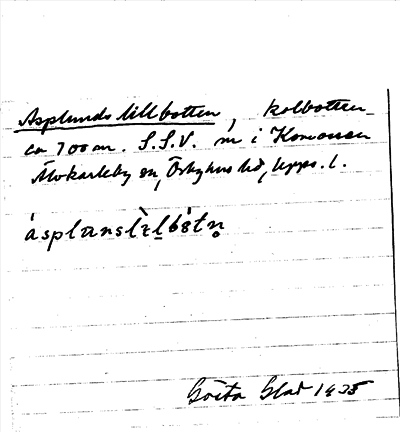 Asplunds lillbotten, kolbotten
ca 700 m. S.S.V. m i Komossen
Älvkarleby sn, Örbyhus hd, Upps. l.
Gösta Blad 1935